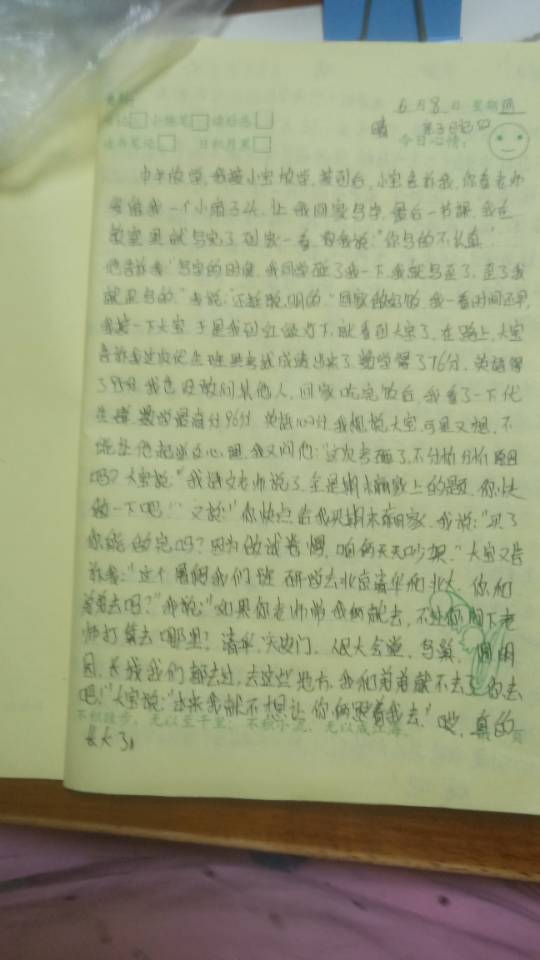 6月8日 星期四
日记 小练笔 读好书
晴 亲子日记
读书笔记 日积月累 今日心情：
中午放学，我接小宝放学，放到后，小宝告诉我，你看老师
发给我一个小本子，让我回家写字，最后一节课，我在
教室里就写完了，到家一看，我说："你写的不认真"
他告诉我："写字的时候，我同学碰了我一下，我就写歪了，歪了我
就歪写的。"我说："还挺聪明的。"回家做好饭，我一看时间还早，
我接一下大宝，于是我到红绿灯下，就看到大宝了，在路上，大宝
告诉我这次优生班考试成绩出来了，数学得了76分，英语得
了95分，我也没敢问其他人，回家吃完饭后，我看了一下优
生群，数学最高分96分，英语100分，我想说大宝，可是又想，不
能让他起逆反心理，我又问他："这次考砸了，不分析分析原因
吗？"大宝说："我语文老师说了，全是期末前教上的题，你快
做一下吧！"又说："你快点给我买期末前家，我说："买了
你能做完吗？因为做试卷，咱俩天天吵架。"大宝又告
诉我："这个暑假我们班研学去北京清华和北大，你们
爸爸去吗？"我说："如果你老师带我们就去，不过你问下老
师打算去哪里？清华，天安门，人民大会堂，鸟巢，圆明
园，长城我们都去过，去这些地方，我和爸爸就不去了，你去
吧！"大宝说："本来我就不想让你俩跟着我去。"哎，真的
不积跬步，无以至千里；不积小流，无以成江海。 页
长大了。